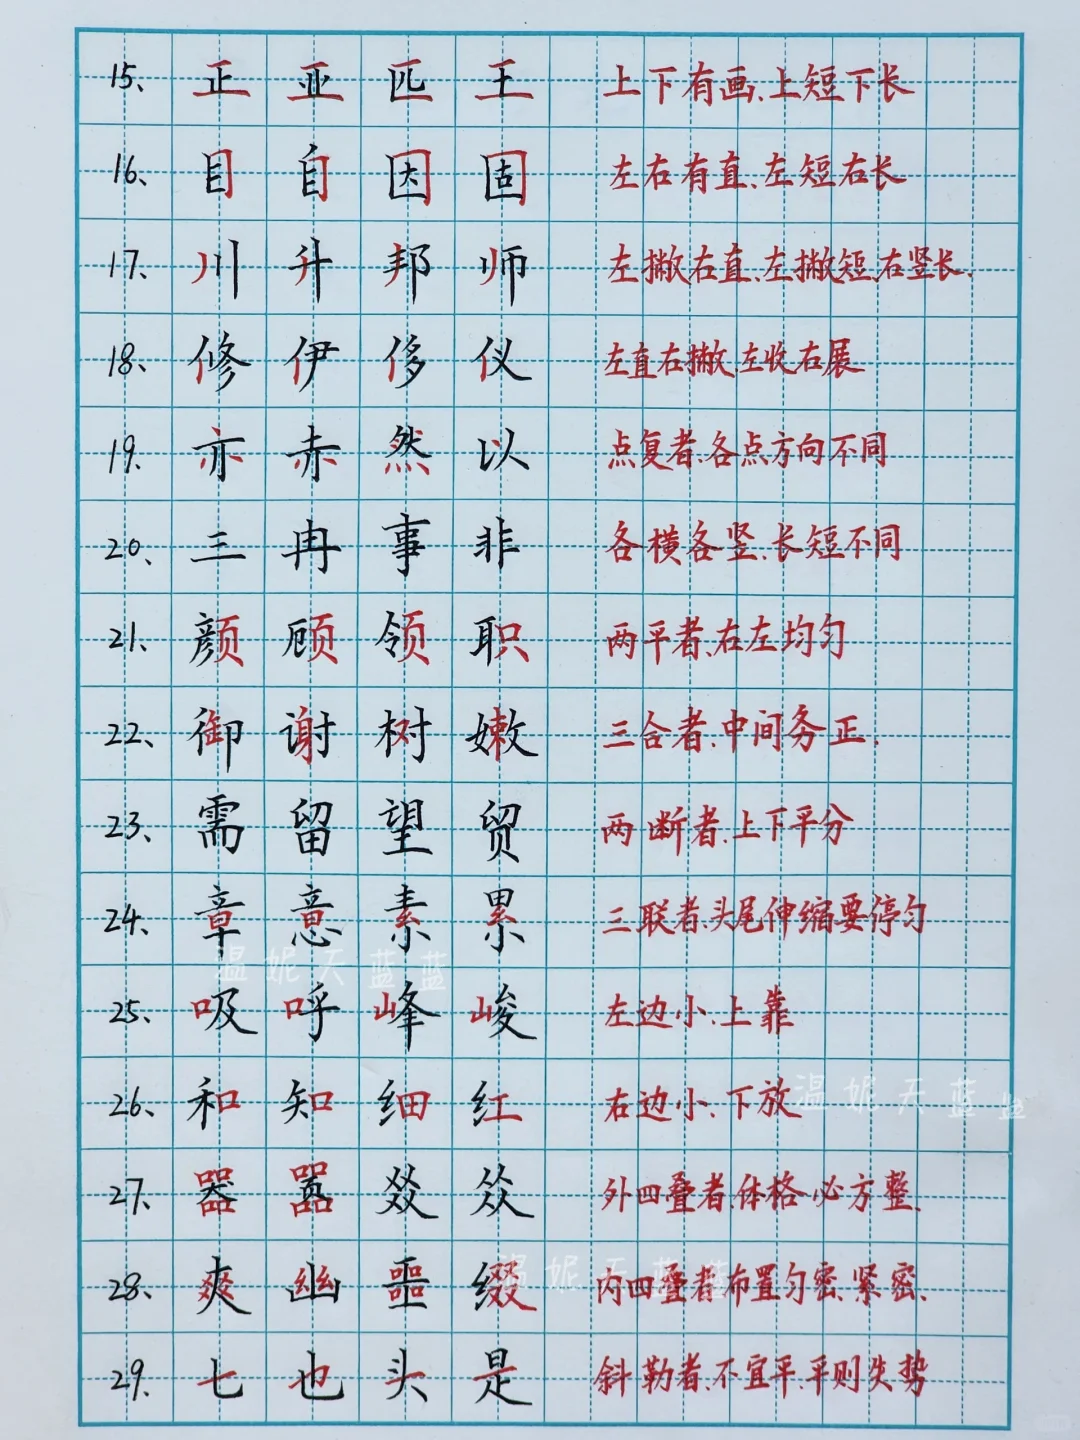 15、正亚匹王 上下有画、上短下长
16、目自因固 左右有直、左短右长
17、川升邦师 左撇右直、左撇短、右竖长.
18、修伊侈仪 左直右撇、左收右展
19、亦赤然以 点复者、各点方向不同
20、三冉事非 各横各竖、长短不同
21、颜顾领职 两平者、右左均匀
22、御谢树嫩 三合者、中间务正.
23、需留望贸 两断者、上下平分
24、章意素累 三联者、头尾伸缩要停匀
温妮天蓝蓝
25、吸呼峰峻 左边小、上靠
26、和知细红 右边小、下放
温妮天蓝蓝
27、器嚣叕炏 外四叠者、体格必方整、
温妮天蓝蓝
28、爽幽噩缀 内四叠者布置匀密、紧密、
29、七也头是 斜勒者、不宜平、平则失势